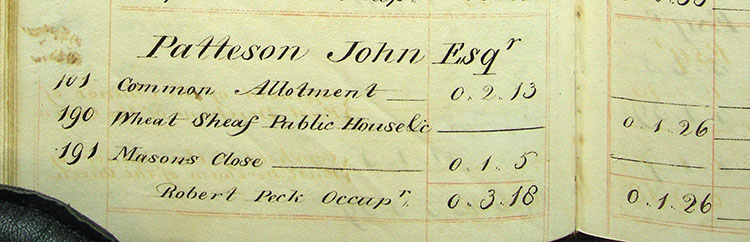 Patteson John Esqr
101 Common Allotment 0.2.13
190 Wheat Sheaf Public House &c 0.1.26
191 Masons Close 0.1.5
Robert Peck Occupr. 0.3.18 0.1.26